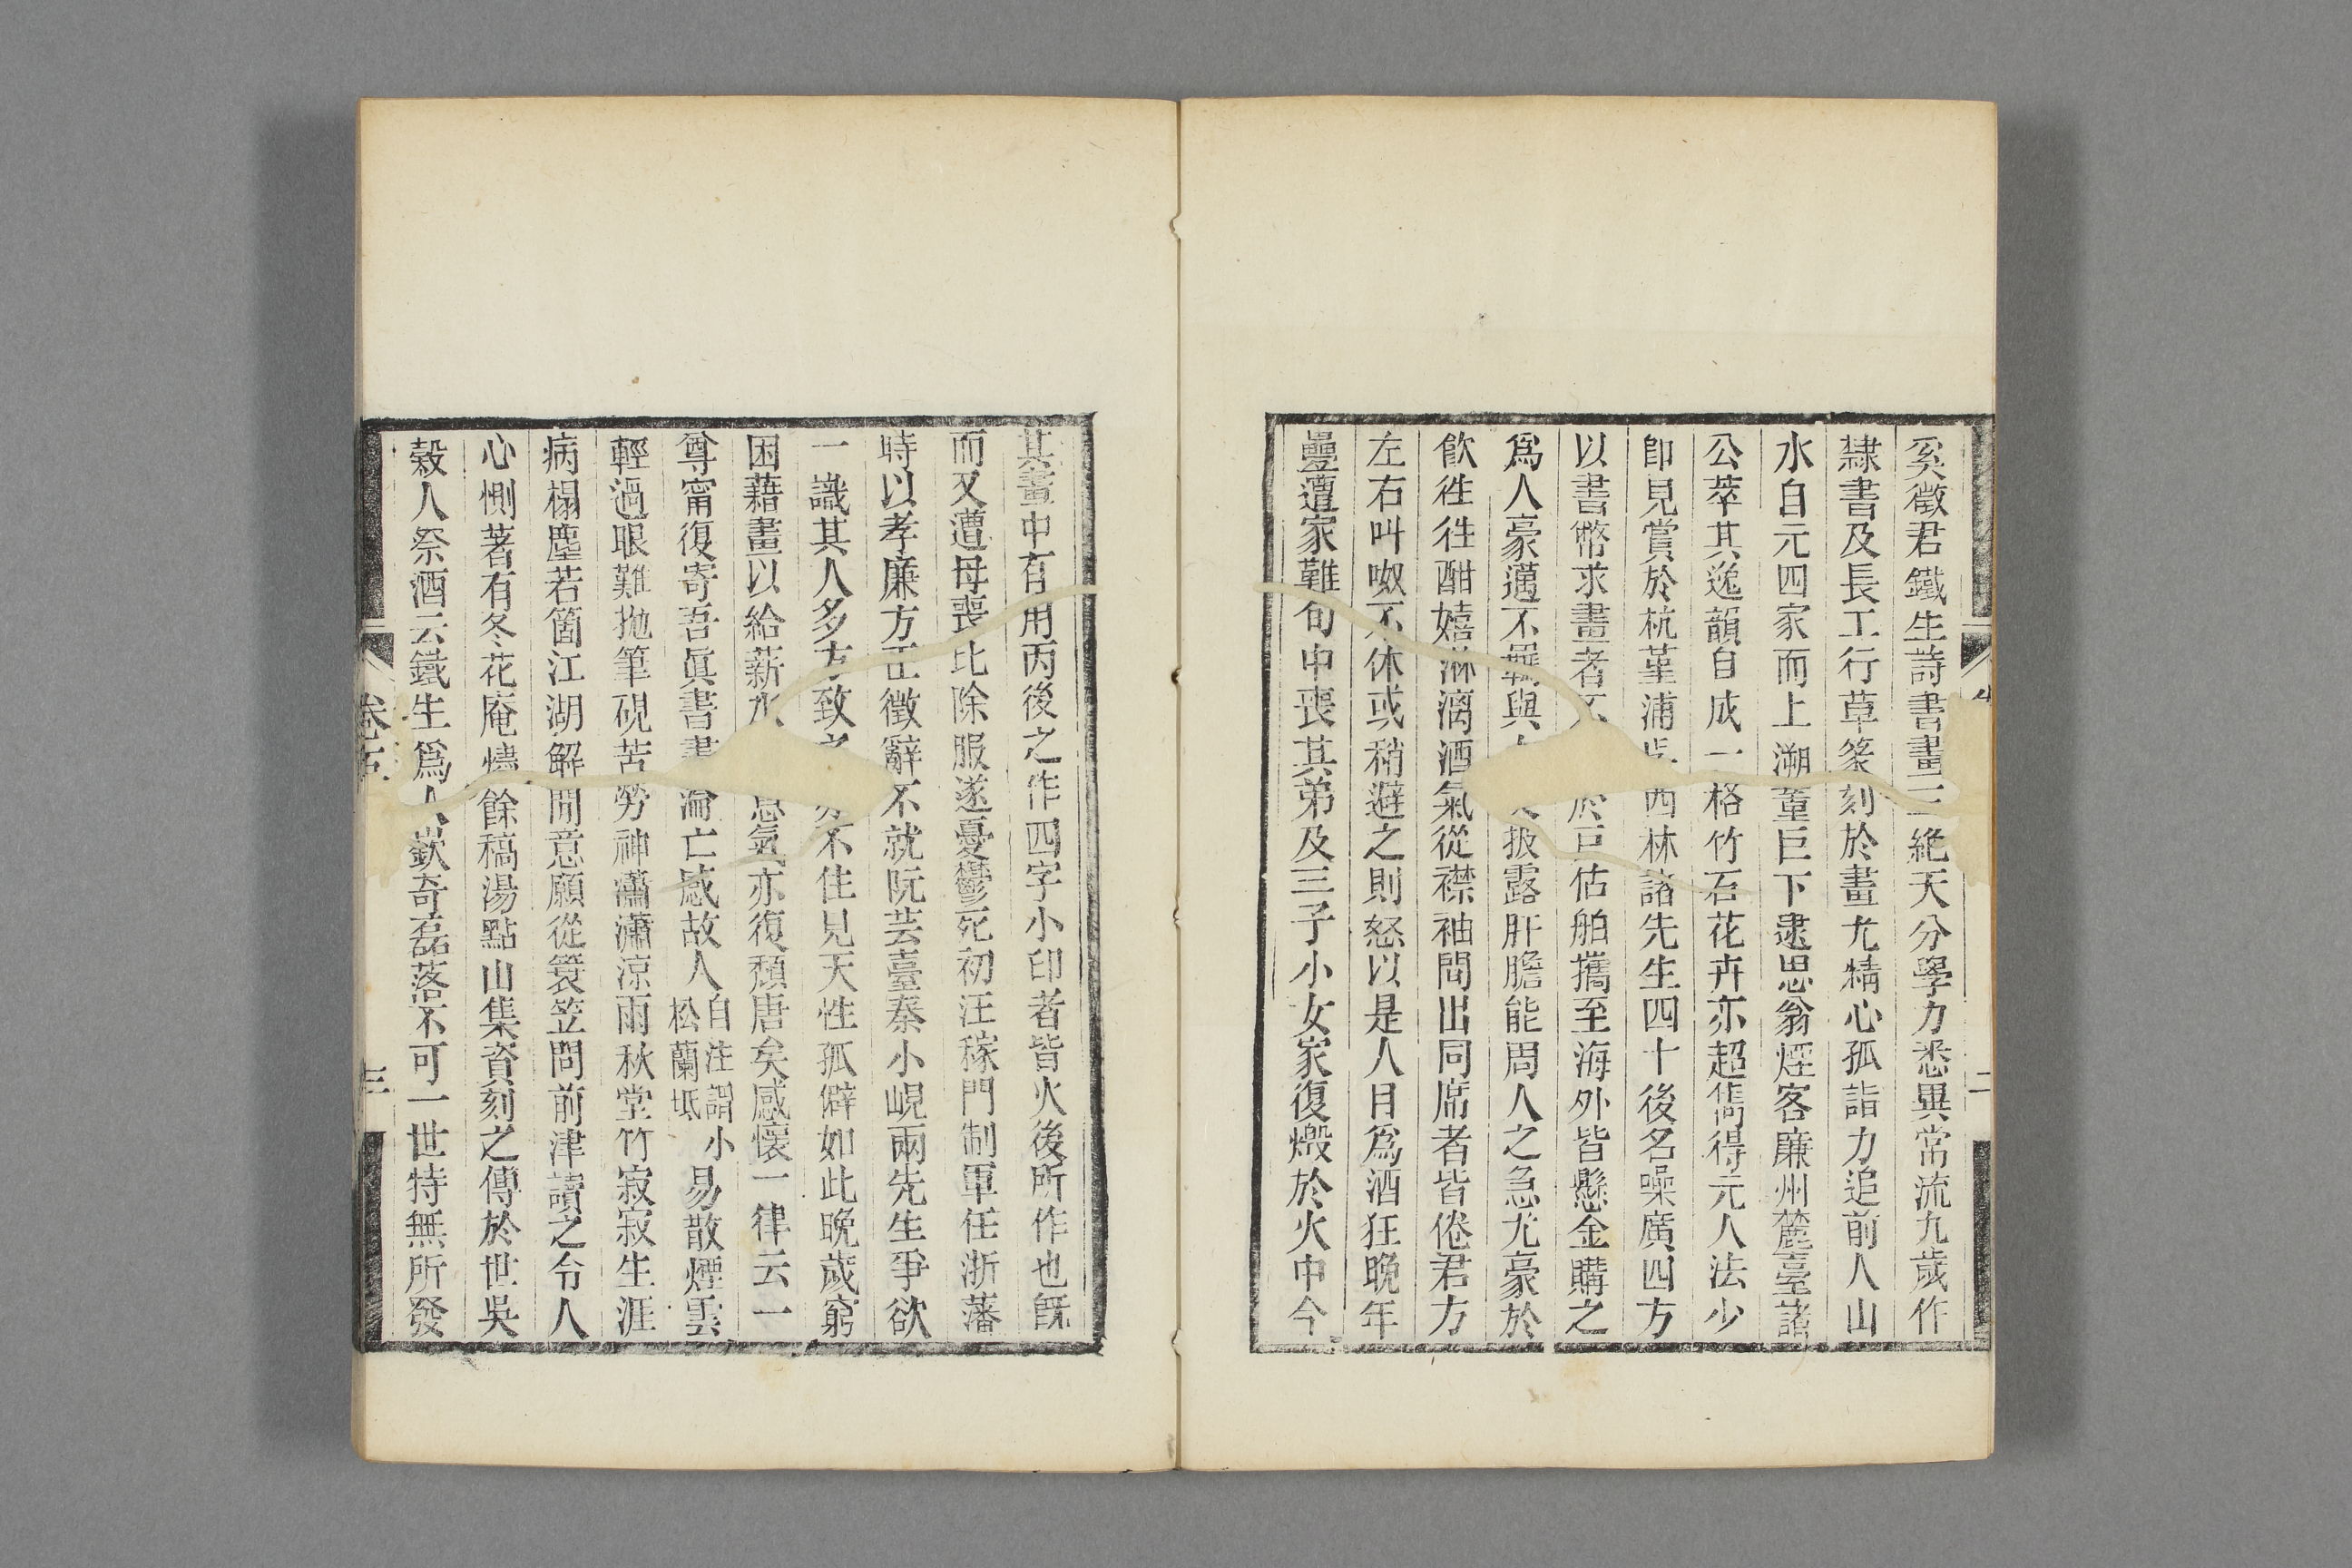 奚徵君鐵生詩書畫三絶天分學力悉異常流九歲作
隸書及長工行草篆刻於畫尤精心孤詣力追前人山
水自元四家而上溯董巨下逮思翁煙客廉州麓臺諸
公萃其逸韻自成一格竹石花卉亦超雋得元人法少
卽見賞於杭堇浦吳西林諸先生四十後名噪廣四方
以書幣求畫者不於巨估舶攜至海外皆懸金購之
爲人豪邁不羈與披露肝膽能周人之急尤豪於
飮徃徃酣嬉淋漓酒氣從襟袖間出同席者皆倦君方
左右叫呶不休或稍避之則怒以是人目爲酒狂晚年
疊遭家難旬中喪其弟及三子小女家復燬於火中今
其畫中有用丙後之作四字小印者皆火後所作也旣
而又遭母喪比除服遂憂鬱死初汪稼門制軍任浙藩
時以孝廉方正徵辭不就阮芸臺秦小峴兩先生爭欲
一識其人多方致之亦不住見天性孤僻如此晚歲窮
困藉畫以給薪水意氣亦復頹唐矣感懷一律云一
尊甯復寄吾眞書畫淪亡感故人自注謂小松蘭坻易散煙雲
輕過眼難拋筆硯苦勞神瀟瀟涼雨秋堂竹寂寂生涯
病榻塵若箇江湖解閒意願從簑笠問前津讀之令人
心惻著有冬花庵燼餘稿湯點山集資刻之傳於世吳
穀人祭酒云鐵生爲人嶔奇磊落不可一世特無所發
卷五
三
二